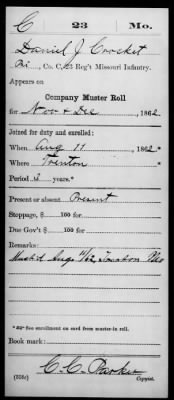 C 23 Mo.
Daniel J Crocket
Pri, Co. C, 23 Reg't Missouri Infantry.
Appears on
Company Muster Roll
for Nov & Dec, 1862.
Joined for duty and enrolled:
When Aug 11, 1862*
Where Trenton
Period 3 years.*
Present or absent Present
Stoppage, $ 100 for
Due Gov't $ 100 for
Remarks:
Must'd Aug 62, Mo
*See enrollment on card from muster-in roll.
Book mark:
C. C. Parker
Copyist.